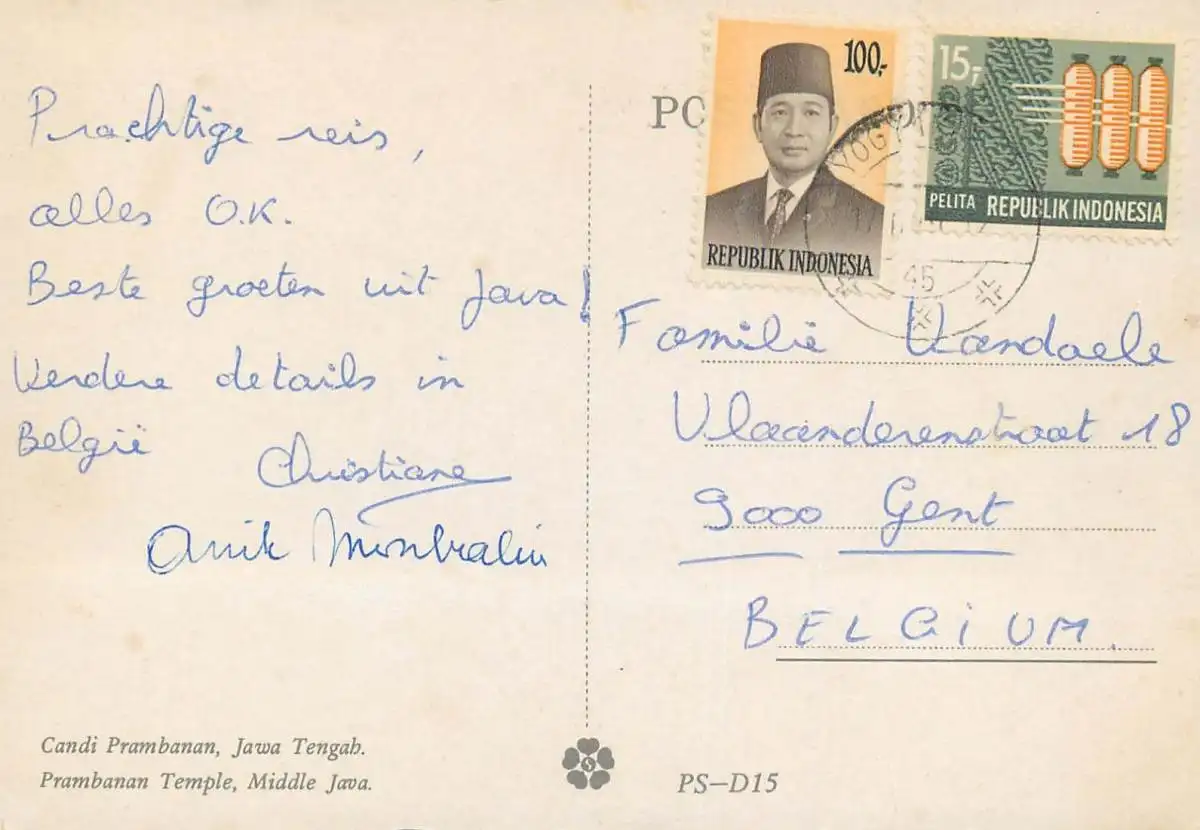 Prachtige reis,
alles O.K.
Beste groeten uit Java!
Verdere details in
België
Christiane
Anik
Candi Prambanan, Jawa Tengah.
Prambanan Temple, Middle Java.
PO
100,-
REPUBLIK INDONESIA
15,-
PELITA REPUBLIK INDONESIA
45
Familie Vandaele
Vlaanderenstraat 18
9000 Gent
BELGIUM.
PS-D15